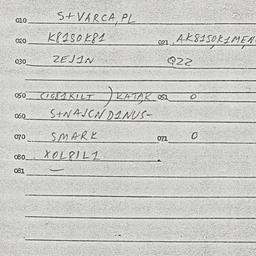 010 S+VARCA,PL
020 K81SOK81 021 AK81SOK1MEN
030 ZEJ1N QZZ
050 CIG81KILT ) KATAK 051 0
060 S+NAJCND1NUS-
070 SMARK 071 0
080 XOLPIL1
081 -